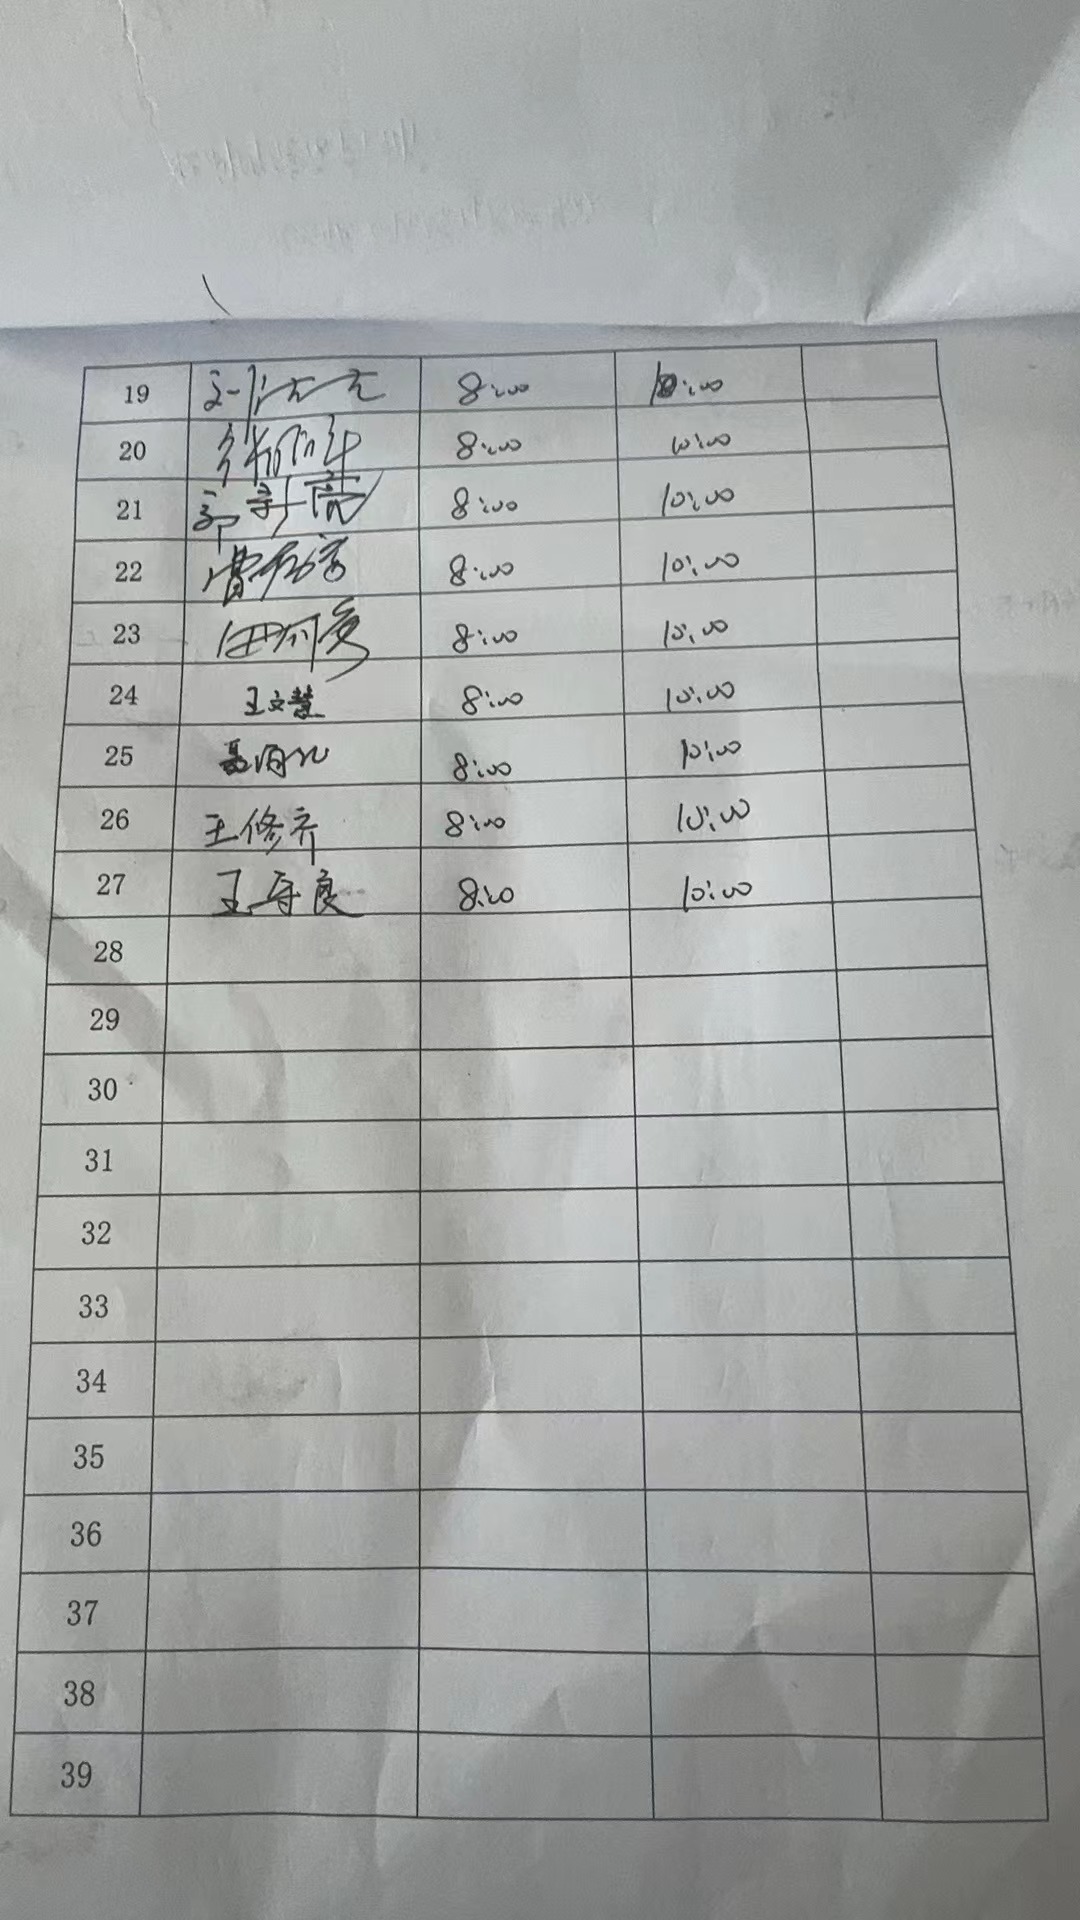 19 8:00 10:00
20 8:00 10:00
21 郭 亮 8:00 10:00
22 曹 8:00 10:00
23 田 8:00 10:00
24 王文慧 8:00 10:00
25 8:00 10:00
26 王修齐 8:00 10:00
27 王存良 8:00 10:00
28
29
30
31
32
33
34
35
36
37
38
39